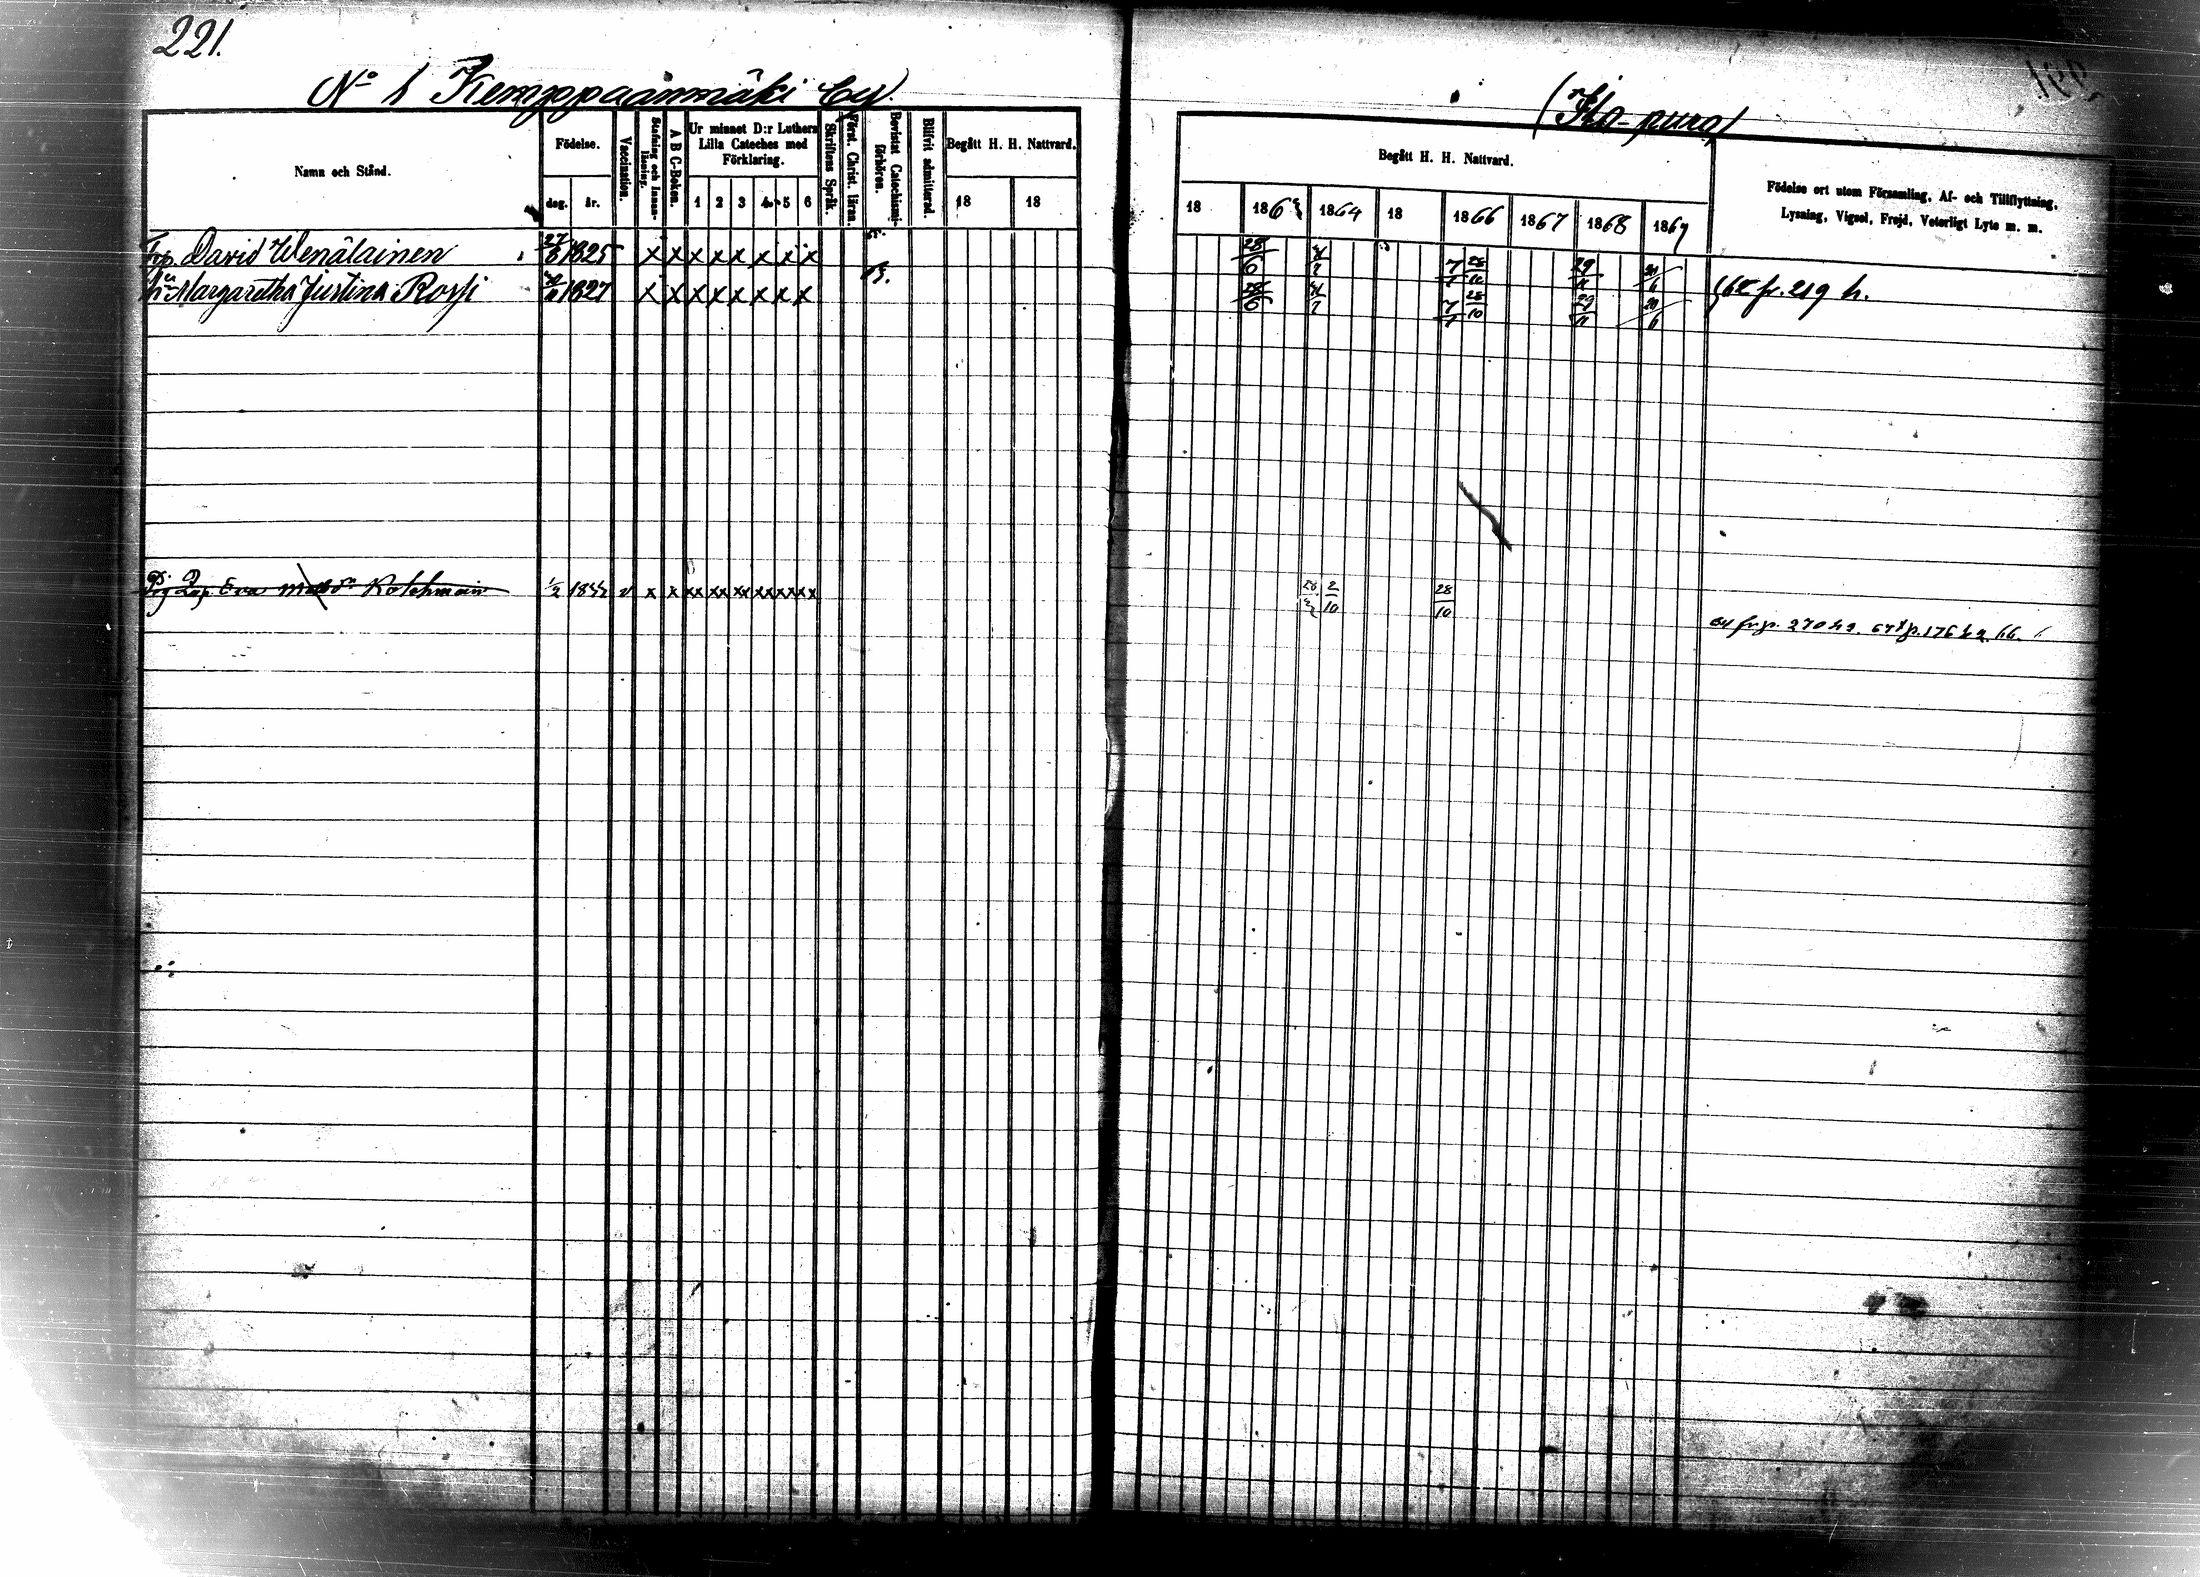 221.
No 1 Kemppaanmäki by.
Namn och Stånd.
Födelse.
dag. år.
Vaccination.
Stafning och Innan-läsning.
A B C-Boken.
Ur minnet D:r Luthers
Lilla Cateches med
Förklaring.
1 2 3 4 5 6
Skriftens Språk.
Först. Christ. läran.
Bevistat Catechismi-förhören.
Blifvit admitterad.
Begått H. H. Nattvard.
18 18
David Wenäläinen 27/6 1825 x x x x x x x x
Margaretha Justina Rossi 1827 x x x x x x x x
Eva Kotchmain 1/2 v x x xx xx xx xx xx xx
Begått H. H. Nattvard.
18 1863 1864 18 1866 1867 1868 1869
Födelse ort utom Församling, Af- och Tillflyttning,
Lysning, Vigsel, Frejd, Veterligt Lyte m. m.
28/6 7/1 28/10 29/11 20/6
28/6 7/1 28/10 29/11 20/6
fr. 219 h.
2/10 28/10
fr. p. 270 h 2. 67 p. 176 h 2.